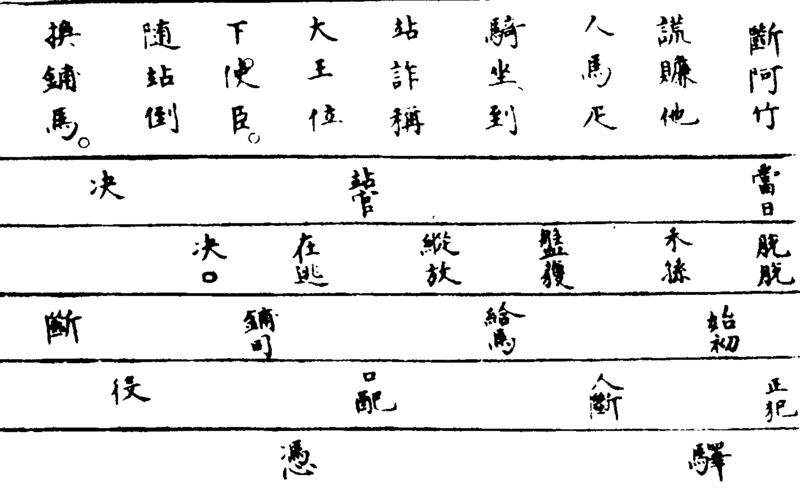 斷阿竹
謊賺他
人馬疋
騎坐到
站詐稱
大王位
下使臣。
隨站倒
換鋪馬。
當日
站官
决
脱脱
禾孫
盤獲
縱放
在逃
决□
始初
給馬
鋪司
斷
正犯
人斷
□配
役
驛
憑